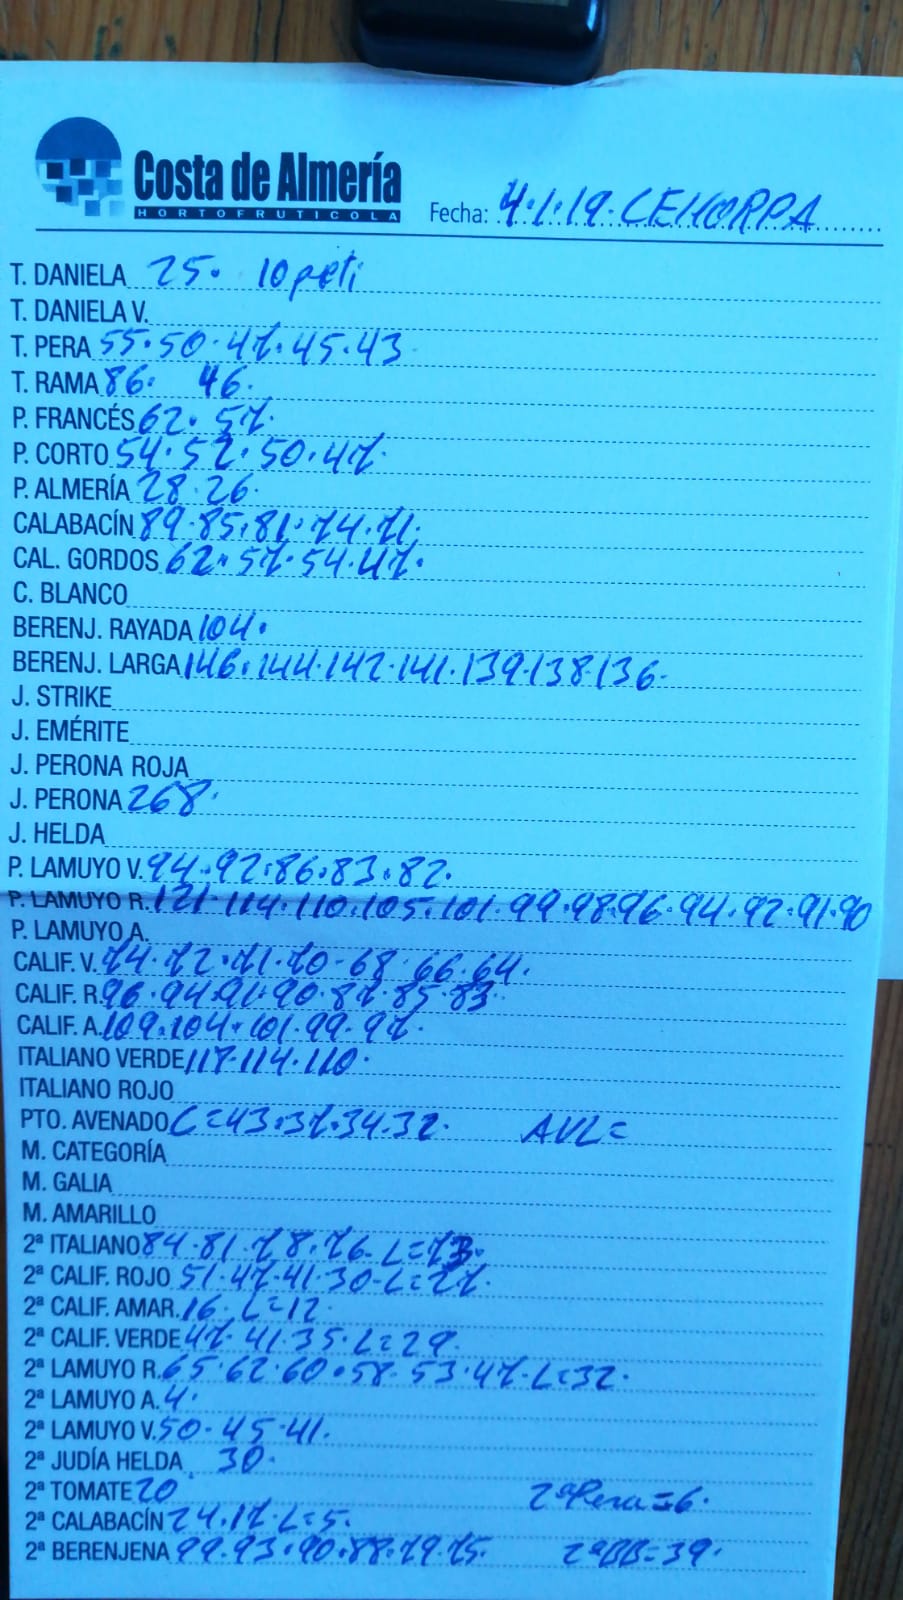 Costa de Almería
HORTOFRUTICOLA
Fecha: 4.1.19. CEHORPA
T. DANIELA 25. 10 peti
T. DANIELA V.
T. PERA 55.50.47.45.43
T. RAMA 86. 46.
P. FRANCÉS 62. 57.
P. CORTO 54.52.50.47.
P. ALMERÍA 28.26.
CALABACÍN 89.85.81.74.71.
CAL. GORDOS 62.57.54.47.
C. BLANCO
BERENJ. RAYADA 104.
BERENJ. LARGA 146.144.142.141.139.138.136.
J. STRIKE
J. EMÉRITE
J. PERONA ROJA
J. PERONA 268.
J. HELDA
P. LAMUYO V. 94.92.86.83.82.
P. LAMUYO R. 121.114.110.105.101.99.98.96.94.92.91.90
P. LAMUYO A.
CALIF. V. 74.72.71.70-68.66.64.
CALIF. R. 96.94.91.90.87.85.83.
CALIF. A. 109.104.101.99.97.
ITALIANO VERDE 117.114.110.
ITALIANO ROJO
PTO. AVENADO C=43.37.34.32. AVL=
M. CATEGORÍA
M. GALIA
M. AMARILLO
2ª ITALIANO 84.81.78.76. L=73.
2ª CALIF. ROJO 51.47.41.30-L=27.
2ª CALIF. AMAR. 16. L=12
2ª CALIF. VERDE 47.41.35. L=29.
2ª LAMUYO R. 65.62.60.58.53.47.L=32.
2ª LAMUYO A. 4.
2ª LAMUYO V. 50.45.41.
2ª JUDÍA HELDA 30.
2ª TOMATE 20 2ª Pera=6.
2ª CALABACÍN 24.17.L=5.
2ª BERENJENA 99.93.90.88.79.75. 2ª BB=39.